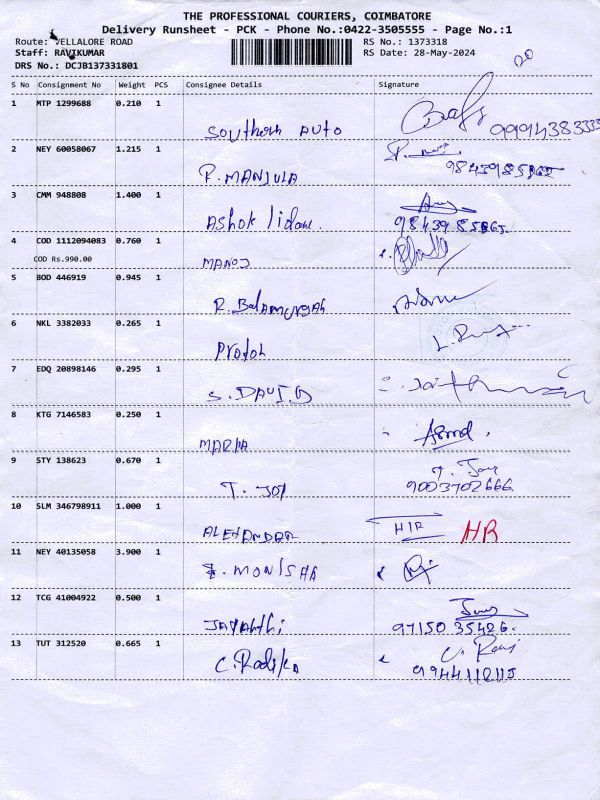 THE PROFESSIONAL COURIERS, COIMBATORE
Delivery Runsheet - PCK - Phone No.:0422-3505555 - Page No.:1
Route: VELLALORE ROAD RS No.: 1373318
Staff: RAVIKUMAR RS Date: 28-May-2024
DRS No.: DCJB137331801
S No Consignment No Weight PCS Consignee Details Signature
1 MTP 1299688 0.210 1
Southern AUTO 99994383333
2 NEY 60058067 1.215 1
P. MANJULA
3 CMM 948808 1.400 1
Ashok
4 COD 1112094083 0.760 1
COD Rs.990.00 MANOJ
5 BOD 446919 0.945 1
R. BalAMURUgAN
6 NKL 3382033 0.265 1
7 EDQ 20898146 0.295 1
S. DAVID
8 KTG 7146583 0.250 1
MARIA
9 STY 138623 0.670 1
T. JOY 9003702666
10 SLM 346798911 1.000 1
HR
11 NEY 40135058 3.900 1
MONISHA
12 TCG 41004922 0.500 1
JAYAhthi 97150 35426.
13 TUT 312520 0.665 1
C. Radika